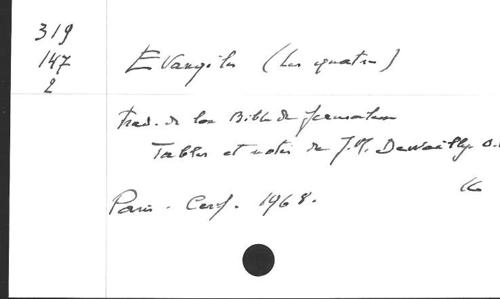 319
147
2
Evangiles (Les quatre)
Trad. de la Bible de Jerusalem
Tables et notes de J.M. Dewailly. O.
Paris. Cerf. 1968.